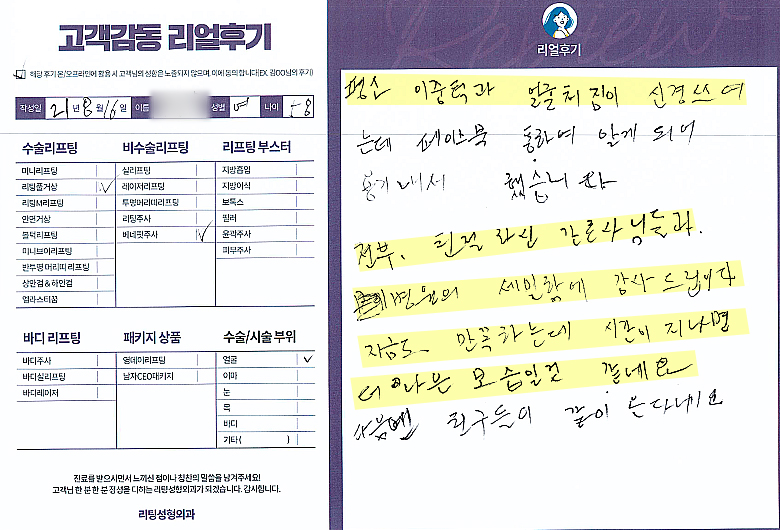 고객감동 리얼후기
해당 후기 온/오프라인에 활용 시 고객님의 성함은 노출되지 않으며, 이에 동의 합니다(EX. 김OO님의 후기)
작성일 21년 8월 16일 이름 성별 여 나이 58
수술리프팅 비수술리프팅 리프팅 부스터
미니리프팅 실리프팅 지방흡입
리빙품거상 레이저리프팅 지방이식
리팅M리프팅 투명머리띠리프팅 보톡스
안면거상 리팅주사 필러
풀턱리프팅 베네핏주사 윤곽주사
미니브이리프팅 피부주사
반투명 머리띠 리프팅
상안검 & 하안검
엘라스티꿈
바디 리프팅 패키지 상품 수술/시술 부위
바디주사 영데이리프팅 얼굴
바디실리프팅 남자CEO패키지 이마
바디레이저 눈
목
바디
기타( )
진료를 받으시면서 느끼신 점이나 칭찬의 말씀을 남겨주세요!
고객님 한 분 한 분 정성을 다하는 리팅성형외과가 되겠습니다. 감사합니다.
리팅성형외과
Review
리얼후기
평소 이중턱과 얼굴처짐이 신경쓰여
는데 페이스북 통하여 알게 되어
용기내서 했습니다
전부, 친절하신 간호사님들과.
병원의 세밀함에 감사드립니다
지금도 만족하는데 시간이 지나면
더 나은 모습일것 같네요
친구들이 같이 온다네요